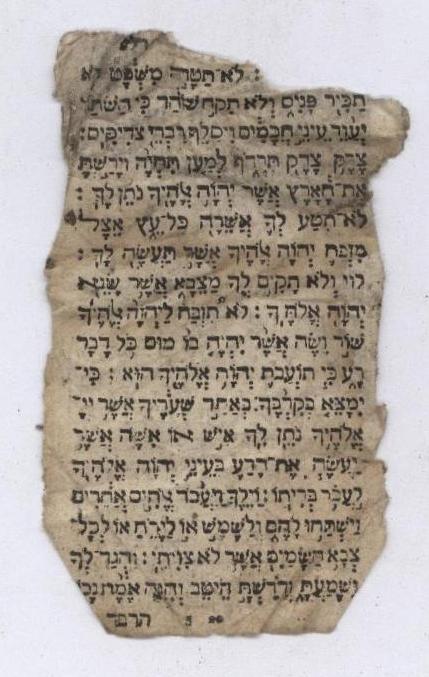 : לא־תטה משפט לא
תכיר פנים ולא תקח שחד כי השחד
יעור עיני חכמים ויסלף דברי צדיקים:
צדק צדק תרדף למען תחיה וירשת
את־הארץ אשר יהוה אלהיך נתן לך :
לא־תטע לך אשרה כל־עץ אצל
מזבח יהוה אלהיך אשר תעשה לך :
לוי ולא תקים לך מצבה אשר שנא
יהוה אלהיך : לא תזבח ליהוה אלהיך
שור ושה אשר יהיה בו מום כל דבר
רע כי תועבת יהוה אלהיך הוא : כי־
ימצא בקרבך באחד שעריך אשר יי־
אלהיך נתן לך איש או אשה אשר
יעשה את־הרע בעיני יהוה אלהיך
לעבר בריתו : וילך ויעבד אלהים אחרים
וישתחו להם ולשמש או לירח או לכל־
צבא השמים אשר לא צויתי : והגד־לך
ושמעת ודרשת היטב והנה אמת נכו
20 5 הדבר